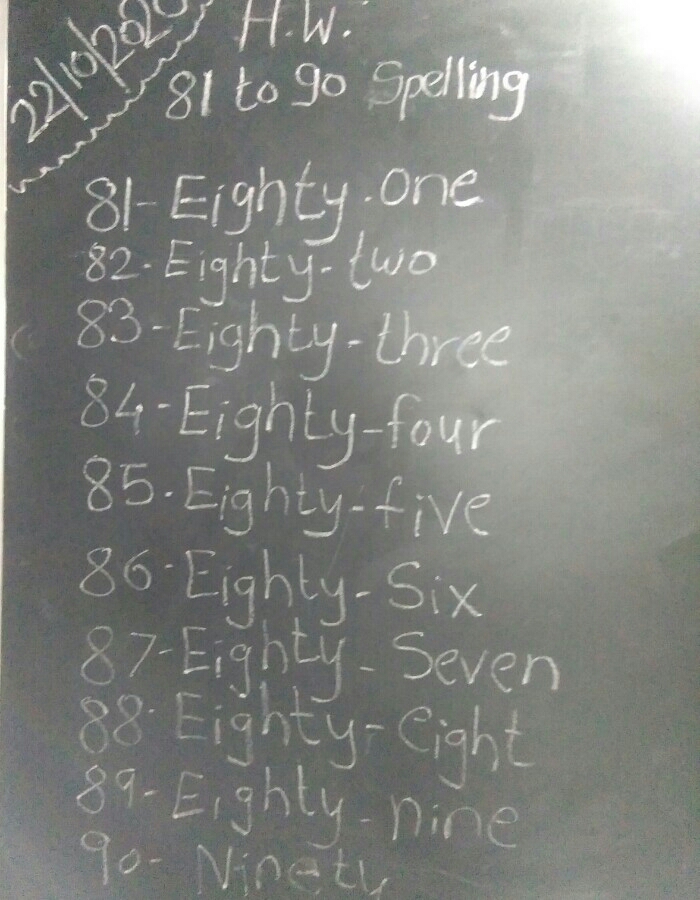 22/10/2020
H.W.
81 to 90 Spelling
81-Eighty-one
82-Eighty-two
83-Eighty-three
84-Eighty-four
85-Eighty-five
86-Eighty-Six
87-Eighty-Seven
88-Eighty-eight
89-Eighty-nine
90-Ninety